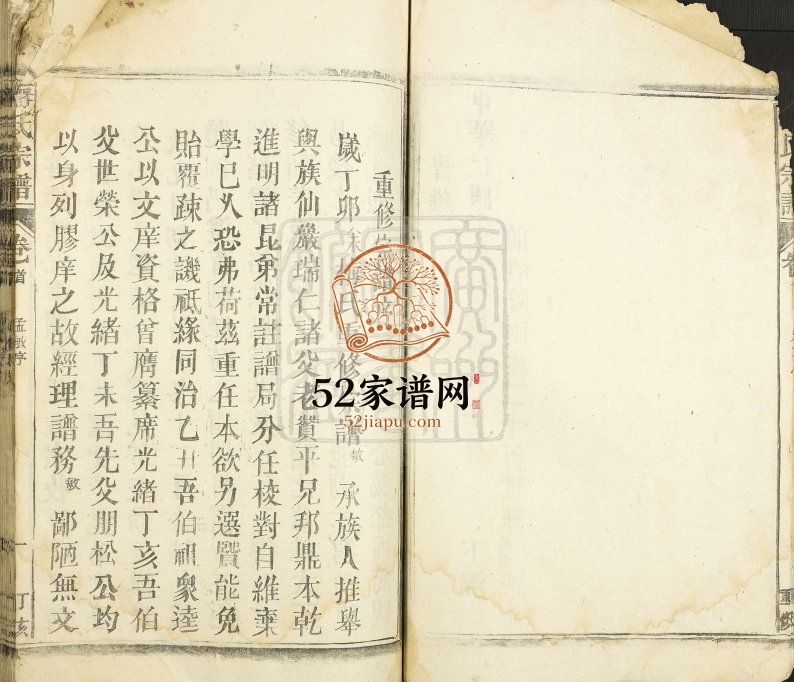 重修
歲丁卯 氏重修 譜敏 承族人推舉
與族仙嚴瑞仁諸父老贊平兄邦鼎本乾
進明諸昆弟常註譜局分任校對自維棄
學已久恐弗荷茲重任本欲另選賢能免
貽覆疎之譏祗緣同治乙丑吾伯祖象逵
公以文庠資格曾膺纂席光緒丁亥吾伯
父世榮公及光緒丁未吾先父朋松公均
以身列膠庠之故經理譜務敏鄙陋無文
氏宗譜
卷首
孟敏序
一
丁亥
52家谱网
52jiapu.com